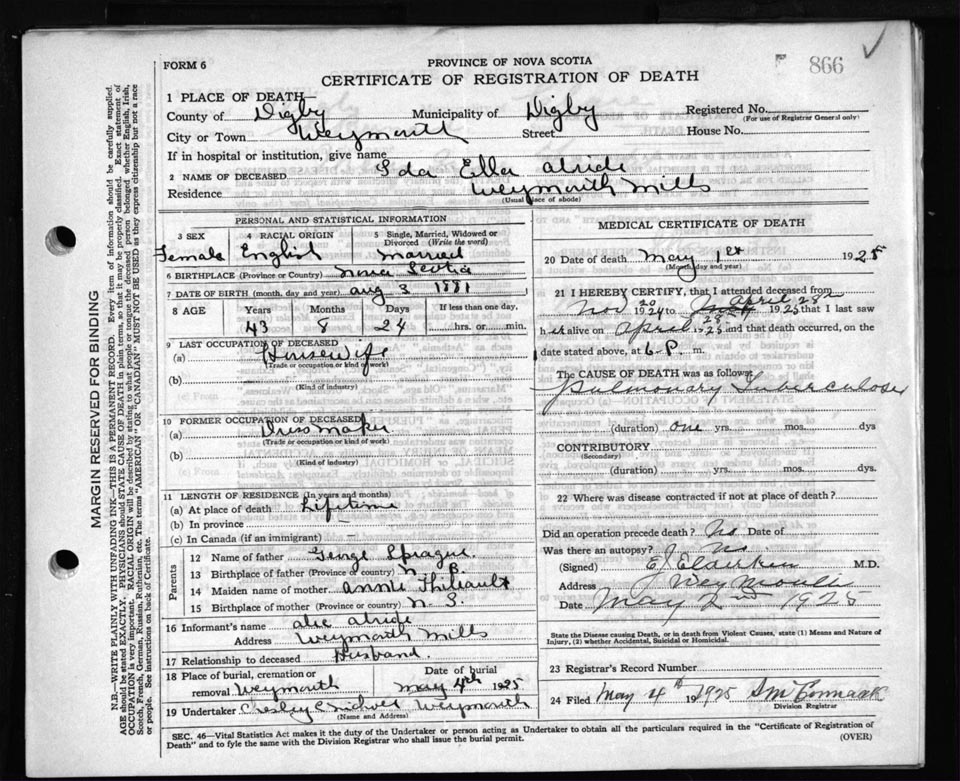 866
FORM 6
PROVINCE OF NOVA SCOTIA
CERTIFICATE OF REGISTRATION OF DEATH
1 PLACE OF DEATH—
County of Digby Municipality of Digby Registered No.
(For use of Registrar General only)
City or Town Weymouth Street House No.
If in hospital or institution, give name
2 NAME OF DECEASED Ida Ella
Residence Weymouth Mills
(Usual place of abode)
PERSONAL AND STATISTICAL INFORMATION
3 SEX 4 RACIAL ORIGIN 5 Single, Married, Widowed or Divorced (Write the word)
Female English Married
6 BIRTHPLACE (Province or Country) Nova Scotia
7 DATE OF BIRTH (month, day and year) Aug 3 1881
8 AGE Years Months Days If less than one day,
43 8 24 hrs. or min.
9 LAST OCCUPATION OF DECEASED
(a) Housewife
(Trade or occupation or kind of work)
(b)
(Kind of industry)
10 FORMER OCCUPATION OF DECEASED
(a) Dressmaker
(Trade or occupation or kind of work)
(b)
(Kind of industry)
11 LENGTH OF RESIDENCE (In years and months)
(a) At place of death Lifetime
(b) In province —
(c) In Canada (if an immigrant) —
Parents
12 Name of father George Sprague
13 Birthplace of father (Province or country) N. B.
14 Maiden name of mother Annie Thibault
15 Birthplace of mother (Province or country) N. S.
16 Informant's name
Address Weymouth Mills
17 Relationship to deceased Husband.
18 Place of burial, cremation or removal Weymouth Date of burial May 4th 1925
19 Undertaker Weymouth
(Name and Address)
MEDICAL CERTIFICATE OF DEATH
20 Date of death May 1st 1925
(Month day and year)
21 I HEREBY CERTIFY, that I attended deceased from
Nov 20 1924 to April 28 1925 that I last saw
h er alive on April 28 1925 and that death occurred, on
the date stated above, at 6 P. m.
The CAUSE OF DEATH was as follows:
Pulmonary Tuberculosis
(duration) one yrs. mos. dys.
CONTRIBUTORY
(Secondary)
(duration) yrs. mos. dys.
22 Where was disease contracted if not at place of death?
Did an operation precede death? No Date of
Was there an autopsy? No
(Signed) E J Elderkin M.D.
Address Weymouth
Date May 2nd 1925
State the Disease causing Death, or in death from Violent Causes, state (1) Means and Nature of Injury, (2) whether Accidental, Suicidal or Homicidal.
23 Registrar's Record Number
24 Filed May 4th 1925 S McCormack
Division Registrar
SEC. 46—Vital Statistics Act makes it the duty of the Undertaker or person acting as Undertaker to obtain all the particulars required in the "Certificate of Registration of
Death" and to fyle the same with the Division Registrar who shall issue the burial permit. (OVER)
MARGIN RESERVED FOR BINDING
N.B.—WRITE PLAINLY WITH UNFADING INK—THIS IS A PERMANENT RECORD. Every item of information should be carefully supplied.
AGE should be stated EXACTLY. PHYSICIANS should STATE CAUSE OF DEATH in plain terms, so that it may be properly classified. Exact statement of
OCCUPATION is very important. RACIAL ORIGIN will be described by stating to what people or tongue the deceased person belonged whether English, Irish,
Scotch, French, German, Russian, Ruthenian, etc. The terms "AMERICAN" OR "CANADIAN" MUST NOT BE USED as they express citizenship but not a race
or people. See instructions on back of Certificate.